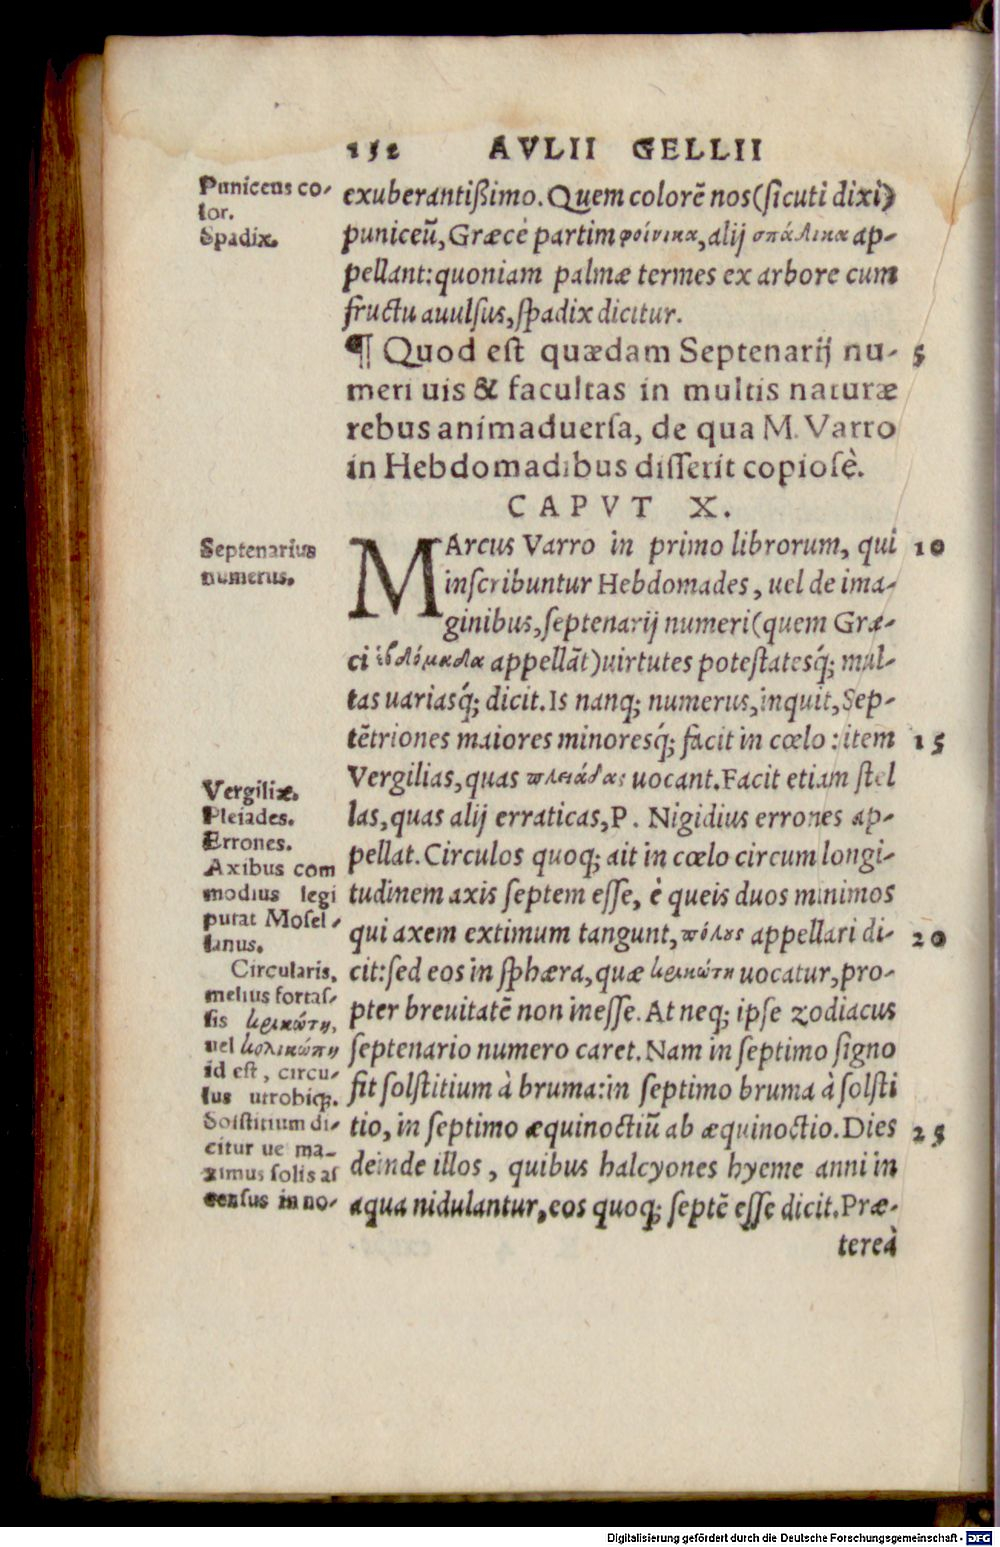 152 AVLII GELLII
Puniceus co-
lor.
Spadix.
exuberantißimo. Quem colorẽ nos (ſicuti dixi)
puniceũ, Græcè partim φοίνικα, alij σπάδικα ap-
pellant: quoniam palmæ termes ex arbore cum
fructu auulſus, ſpadix dicitur.
¶ Quod eſt quædam Septenarij nu- 5
meri uis & facultas in multis naturæ
rebus animaduerſa, de qua M. Varro
in Hebdomadibus diſſerit copioſè.
CAPVT X.
Septenarius
numerus.
MArcus Varro in primo librorum, qui 10
inſcribuntur Hebdomades, uel de ima-
ginibus, ſeptenarij numeri (quem Græ-
ci ἑβδόμαδα appellãt) uirtutes poteſtatesq́; mul-
tas uariasq́; dicit. Is nanq; numerus, inquit, Sep-
tẽtriones maiores minoresq́; facit in cœlo: item 15
Vergilias, quas πλειάδας uocant. Facit etiam ſtel
las, quas alij erraticas, P. Nigidius errones ap-
pellat. Circulos quoq; ait in cœlo circum longi-
tudinem axis ſeptem eſſe, è queis duos minimos
qui axem extimum tangunt, πόλους appellari di- 20
cit: ſed eos in ſphæra, quæ κρικώτη uocatur, pro-
pter breuitatẽ non ineſſe. At neq; ipſe zodiacus
ſeptenario numero caret. Nam in ſeptimo ſigno
fit ſolſtitium à bruma: in ſeptimo bruma à ſolſti
tio, in ſeptimo æquinoctiũ ab æquinoctio. Dies 25
deinde illos, quibus halcyones hyeme anni in
aqua nidulantur, eos quoq; ſeptẽ eſſe dicit. Præ-
tereà
Vergiliæ.
Pleiades.
Errones.
Axibus com
modius legi
putat Moſel-
lanus.
Circularis,
melius fortaſ-
ſis κρικώτη,
uel
id eſt, circu-
lus utrobiq;.
Solſtitium di-
citur ue ma-
ximus ſolis aſ
cenſus in no-
Digitalisierung gefördert durch die Deutsche Forschungsgemeinschaft - DFG